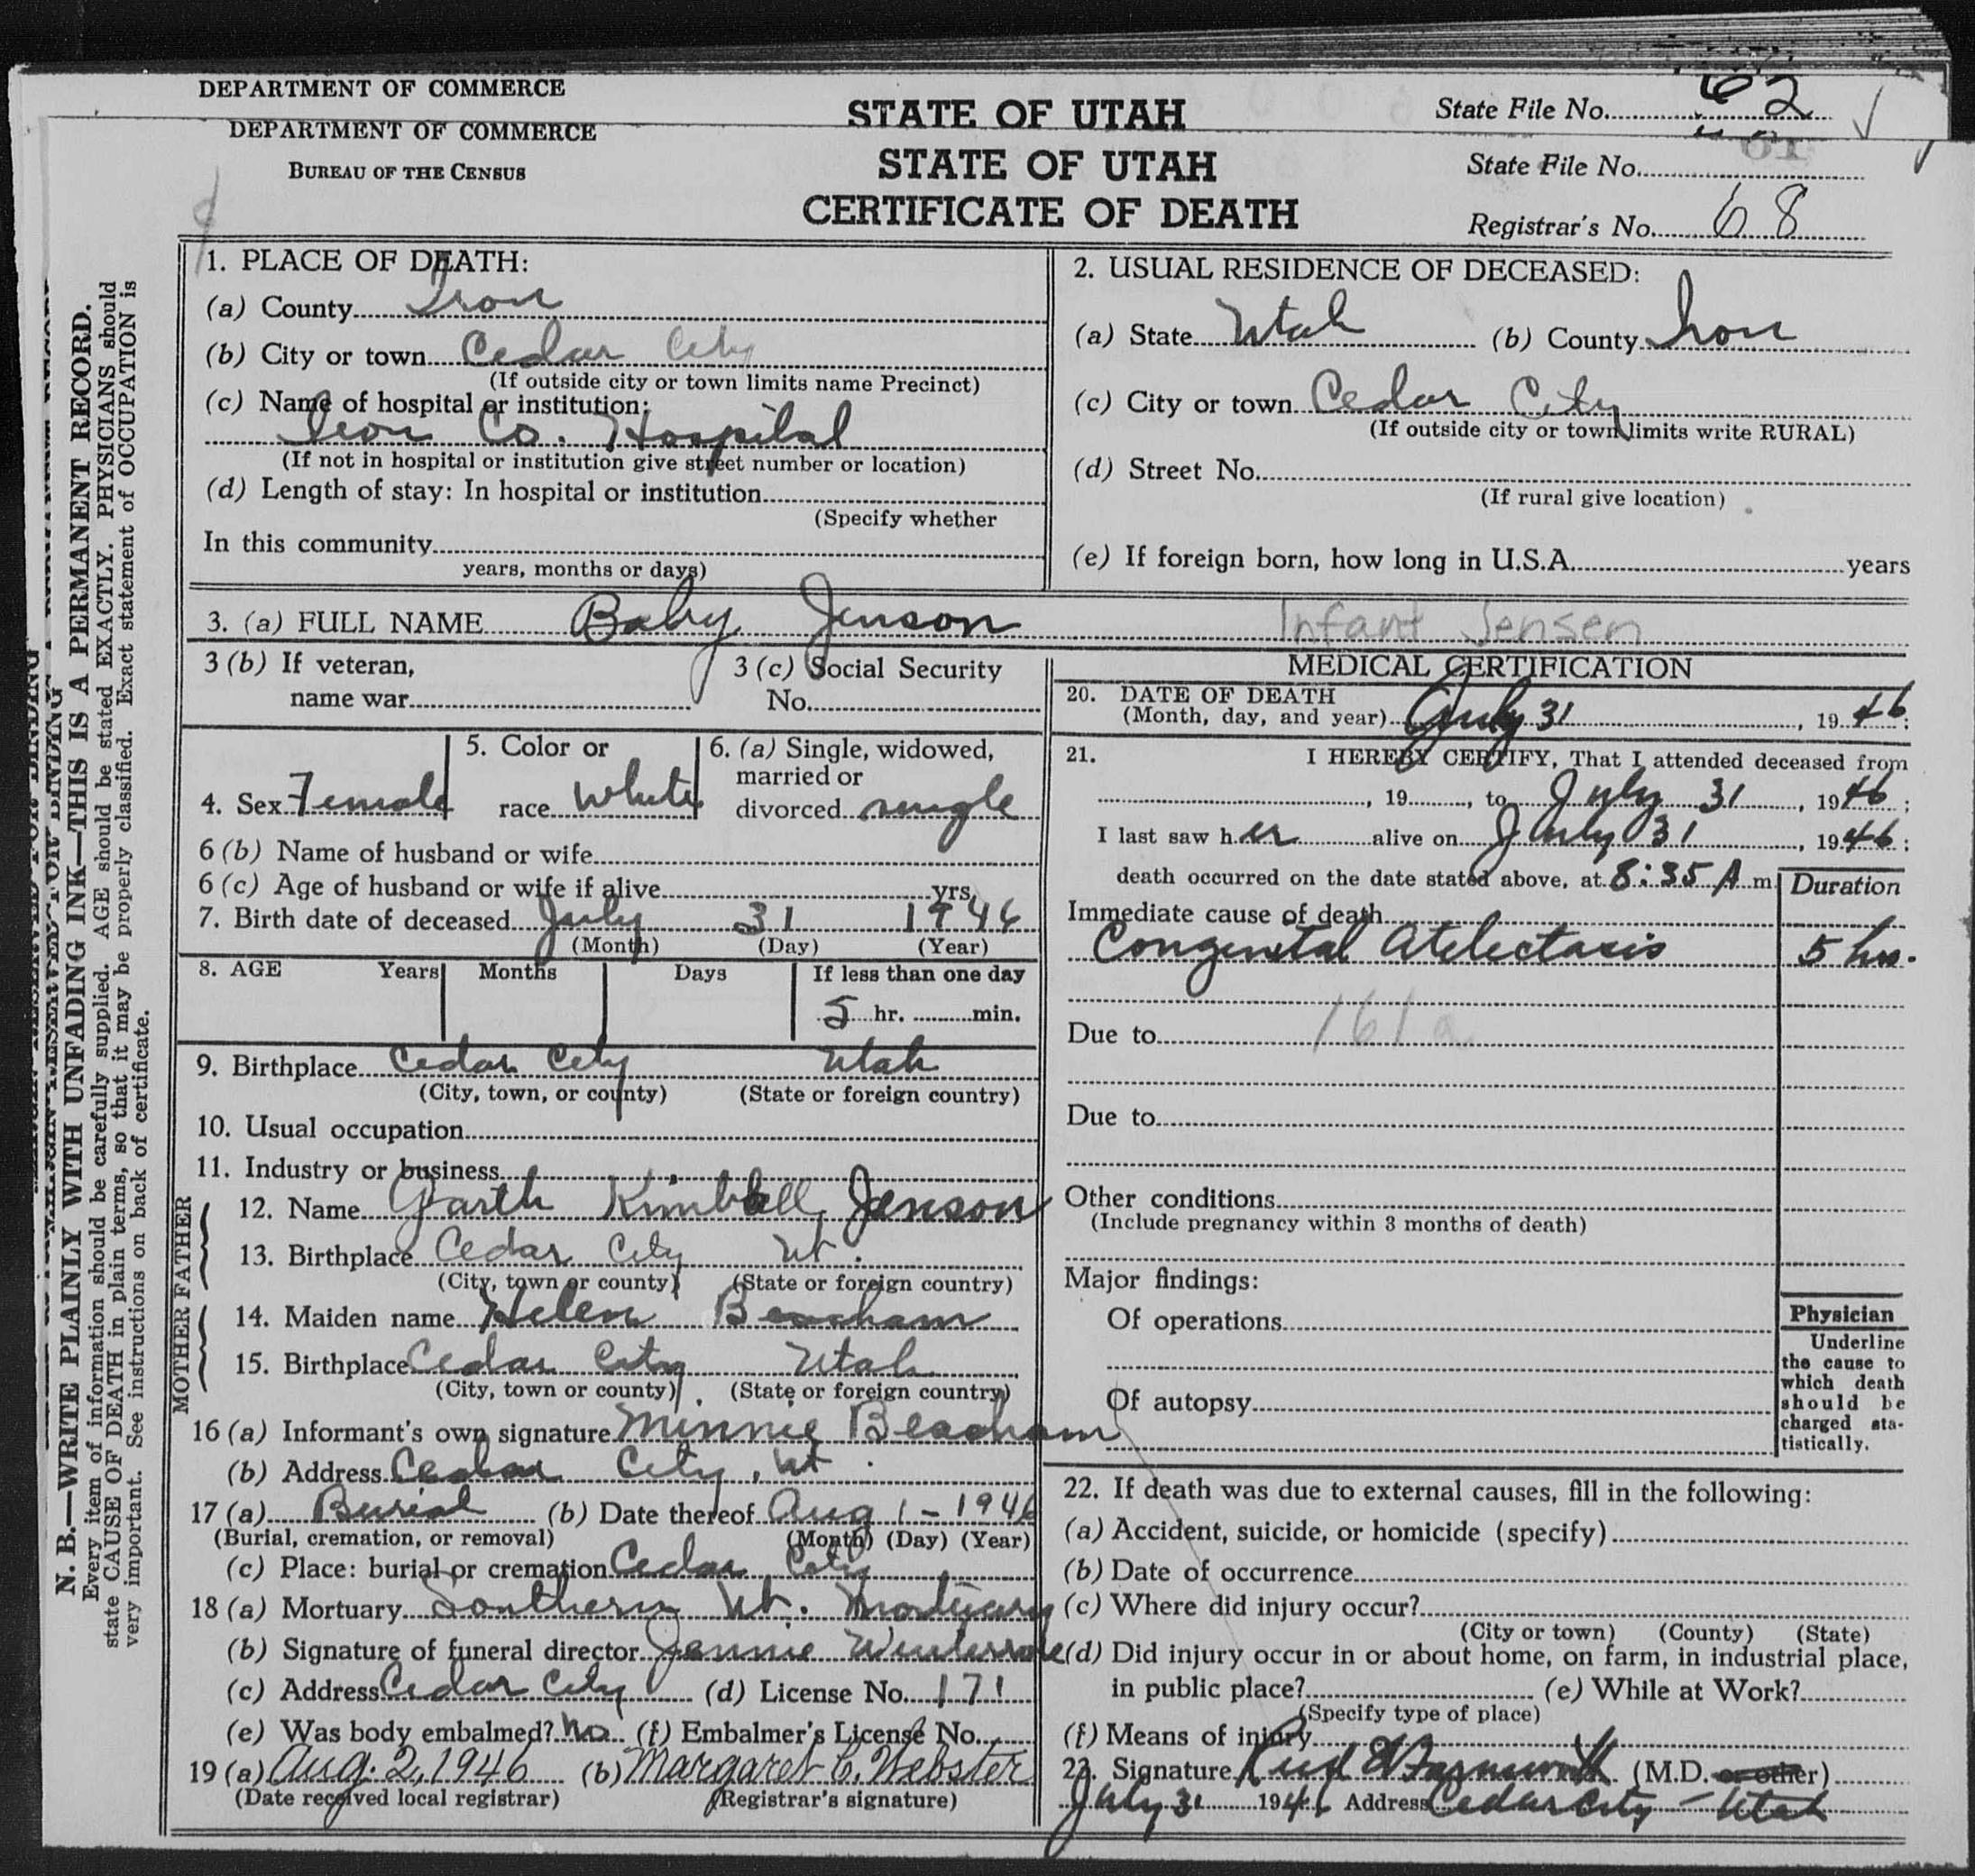 DEPARTMENT OF COMMERCE
STATE OF UTAH
State File No. 62
DEPARTMENT OF COMMERCE
BUREAU OF THE CENSUS
STATE OF UTAH
CERTIFICATE OF DEATH
State File No. 61
Registrar's No. 68
1. PLACE OF DEATH:
(a) County Iron
(b) City or town Cedar City
(If outside city or town limits name Precinct)
(c) Name of hospital or institution:
Iron Co. Hospital
(If not in hospital or institution give street number or location)
(d) Length of stay: In hospital or institution
(Specify whether
In this community
years, months or days)
2. USUAL RESIDENCE OF DECEASED:
(a) State Utah (b) County Iron
(c) City or town Cedar City
(If outside city or town limits write RURAL)
(d) Street No.
(If rural give location)
(e) If foreign born, how long in U.S.A. years
3. (a) FULL NAME Baby Jenson Infant Jensen
3 (b) If veteran,
name war
3 (c) Social Security
No.
4. Sex Female
5. Color or
race White
6. (a) Single, widowed,
married or
divorced single
6 (b) Name of husband or wife
6 (c) Age of husband or wife if alive yrs.
7. Birth date of deceased July 31 1946
(Month) (Day) (Year)
8. AGE Years Months Days If less than one day
5 hr. min.
9. Birthplace Cedar City Utah
(City, town, or county) (State or foreign country)
10. Usual occupation
11. Industry or business
FATHER
12. Name Garth Kimball Jenson
13. Birthplace Cedar City Ut.
(City, town or county) (State or foreign country)
MOTHER
14. Maiden name Helen Beacham
15. Birthplace Cedar City Utah
(City, town or county) (State or foreign country)
16 (a) Informant's own signature Minnie Beacham
(b) Address Cedar City, Ut.
17 (a) Burial (b) Date thereof Aug 1 - 1946
(Burial, cremation, or removal) (Month) (Day) (Year)
(c) Place: burial or cremation Cedar City
18 (a) Mortuary Southern Ut. Mortuary
(b) Signature of funeral director Jennie
(c) Address Cedar City (d) License No. 171
(e) Was body embalmed? No (f) Embalmer's License No.
19 (a) Aug. 2, 1946 (b) Margaret C. Webster
(Date received local registrar) (Registrar's signature)
MEDICAL CERTIFICATION
20. DATE OF DEATH
(Month, day, and year) July 31, 1946.
21. I HEREBY CERTIFY, That I attended deceased from
, 19 , to July 31, 1946;
I last saw her alive on July 31, 1946;
death occurred on the date stated above, at 8:35 A m.
Duration
Immediate cause of death
Congenital Atelectasis 5 hrs.
Due to 161a
Due to
Other conditions
(Include pregnancy within 3 months of death)
Major findings:
Of operations
Of autopsy
Physician
Underline
the cause to
which death
should be
charged sta-
tistically.
22. If death was due to external causes, fill in the following:
(a) Accident, suicide, or homicide (specify)
(b) Date of occurrence
(c) Where did injury occur?
(City or town) (County) (State)
(d) Did injury occur in or about home, on farm, in industrial place,
in public place? (e) While at Work?
(Specify type of place)
(f) Means of injury
23. Signature Farnsworth (M.D. or other)
July 31 1946 Address Cedar City - Utah
N. B.—WRITE PLAINLY WITH UNFADING INK—THIS IS A PERMANENT RECORD.
Every item of information should be carefully supplied. AGE should be stated EXACTLY. PHYSICIANS should
state CAUSE OF DEATH in plain terms, so that it may be properly classified. Exact statement of OCCUPATION is
very important. See instructions on back of certificate.